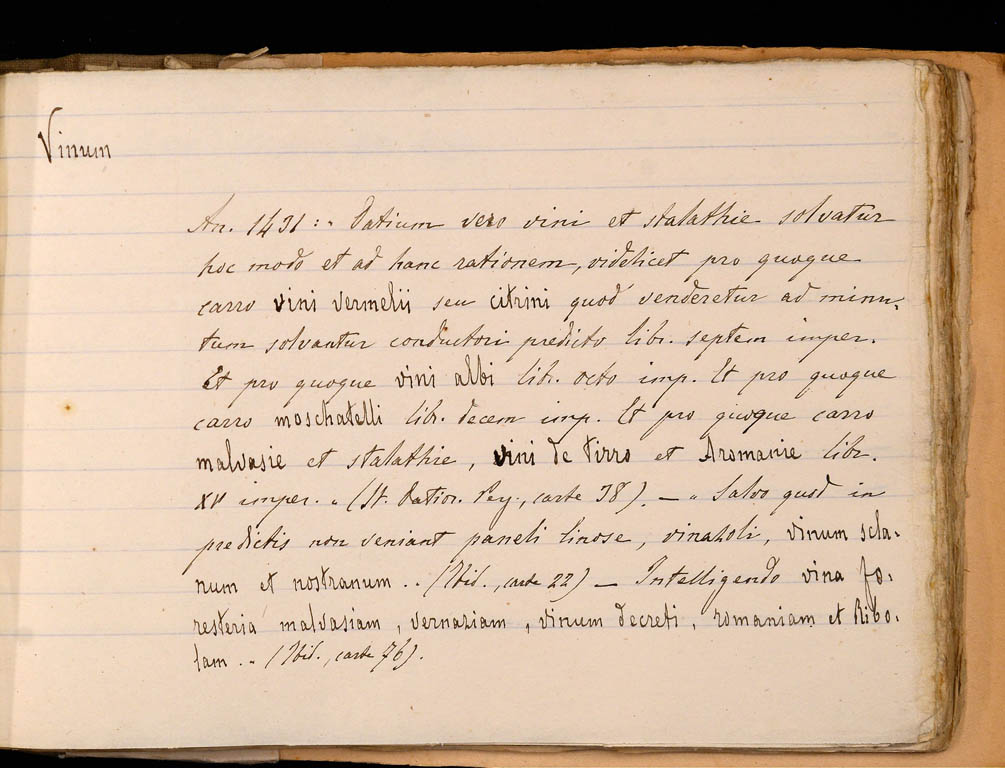 Vinum
An. 1431: „ Datium vero vini et stalathie solvatur
hoc modo et ad hanc rationem, videlicet pro quoque
carro vini vermelii seu citrini quod venderetur ad minu-
tum solvantur conductori predicto libr. septem imper.
Et pro quoque vini albi lib. octo imp. Et pro quoque
carro moschatelli libr. decem imp. Et pro quoque carro
malvasie et stalathie, vini de tirro et Aromanie libr.
XV imper. „ (St. Datior. Rey., carte 38). — „ Salvo quod in
predictis non veniant paneli linose, vinaholi, vinum scla-
num et nostranum . „ (Ibid., carte 22) — Intelligendo vina fo-
resteria malvasiam, vernaziam, vinum decreti, romaniam et Ribo-
lam . „ (Ibid., carte 76).